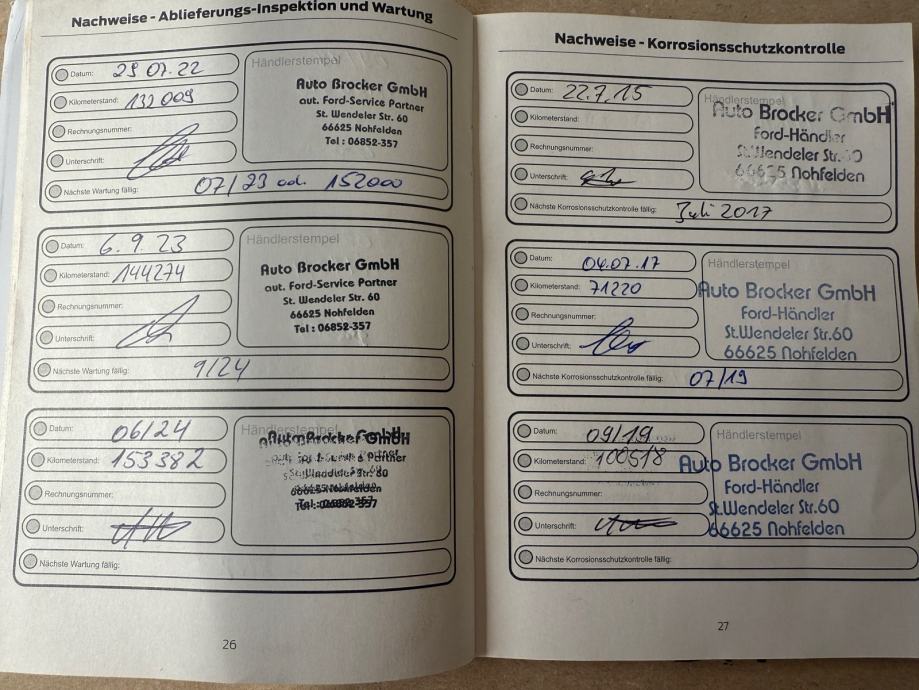 Nachweise - Ablieferungs-Inspektion und Wartung
Datum: 29 07.22
Kilometerstand: 132 009
Rechnungsnummer:
Unterschrift:
Nächste Wartung fällig: 07/23 od. 152000
Händlerstempel
Auto Brocker GmbH
aut. Ford-Service Partner
St. Wendeler Str. 60
66625 Nohfelden
Tel : 06852-357
Datum: 6. 9. 23
Kilometerstand: 144274
Rechnungsnummer:
Unterschrift:
Nächste Wartung fällig: 9/24
Händlerstempel
Auto Brocker GmbH
aut. Ford-Service Partner
St. Wendeler Str. 60
66625 Nohfelden
Tel : 06852-357
Datum: 06/24
Kilometerstand: 153382
Rechnungsnummer:
Unterschrift:
Nächste Wartung fällig:
Händlerstempel
GmbH
Partner
26
Nachweise - Korrosionsschutzkontrolle
Datum: 22.7.15
Kilometerstand:
Rechnungsnummer:
Unterschrift:
Nächste Korrosionsschutzkontrolle fällig: Juli 2017
Händlerstempel
Auto Brocker GmbH
Ford-Händler
St.Wendeler Str. 60
66625 Nohfelden
Datum: 04.07.17
Kilometerstand: 71220
Rechnungsnummer:
Unterschrift:
Nächste Korrosionsschutzkontrolle fällig: 07/19
Händlerstempel
Auto Brocker GmbH
Ford-Händler
St.Wendeler Str.60
66625 Nohfelden
Datum: 09/19
Kilometerstand: 100518
Rechnungsnummer:
Unterschrift:
Nächste Korrosionsschutzkontrolle fällig:
Händlerstempel
Auto Brocker GmbH
Ford-Händler
St.Wendeler Str.60
66625 Nohfelden
27